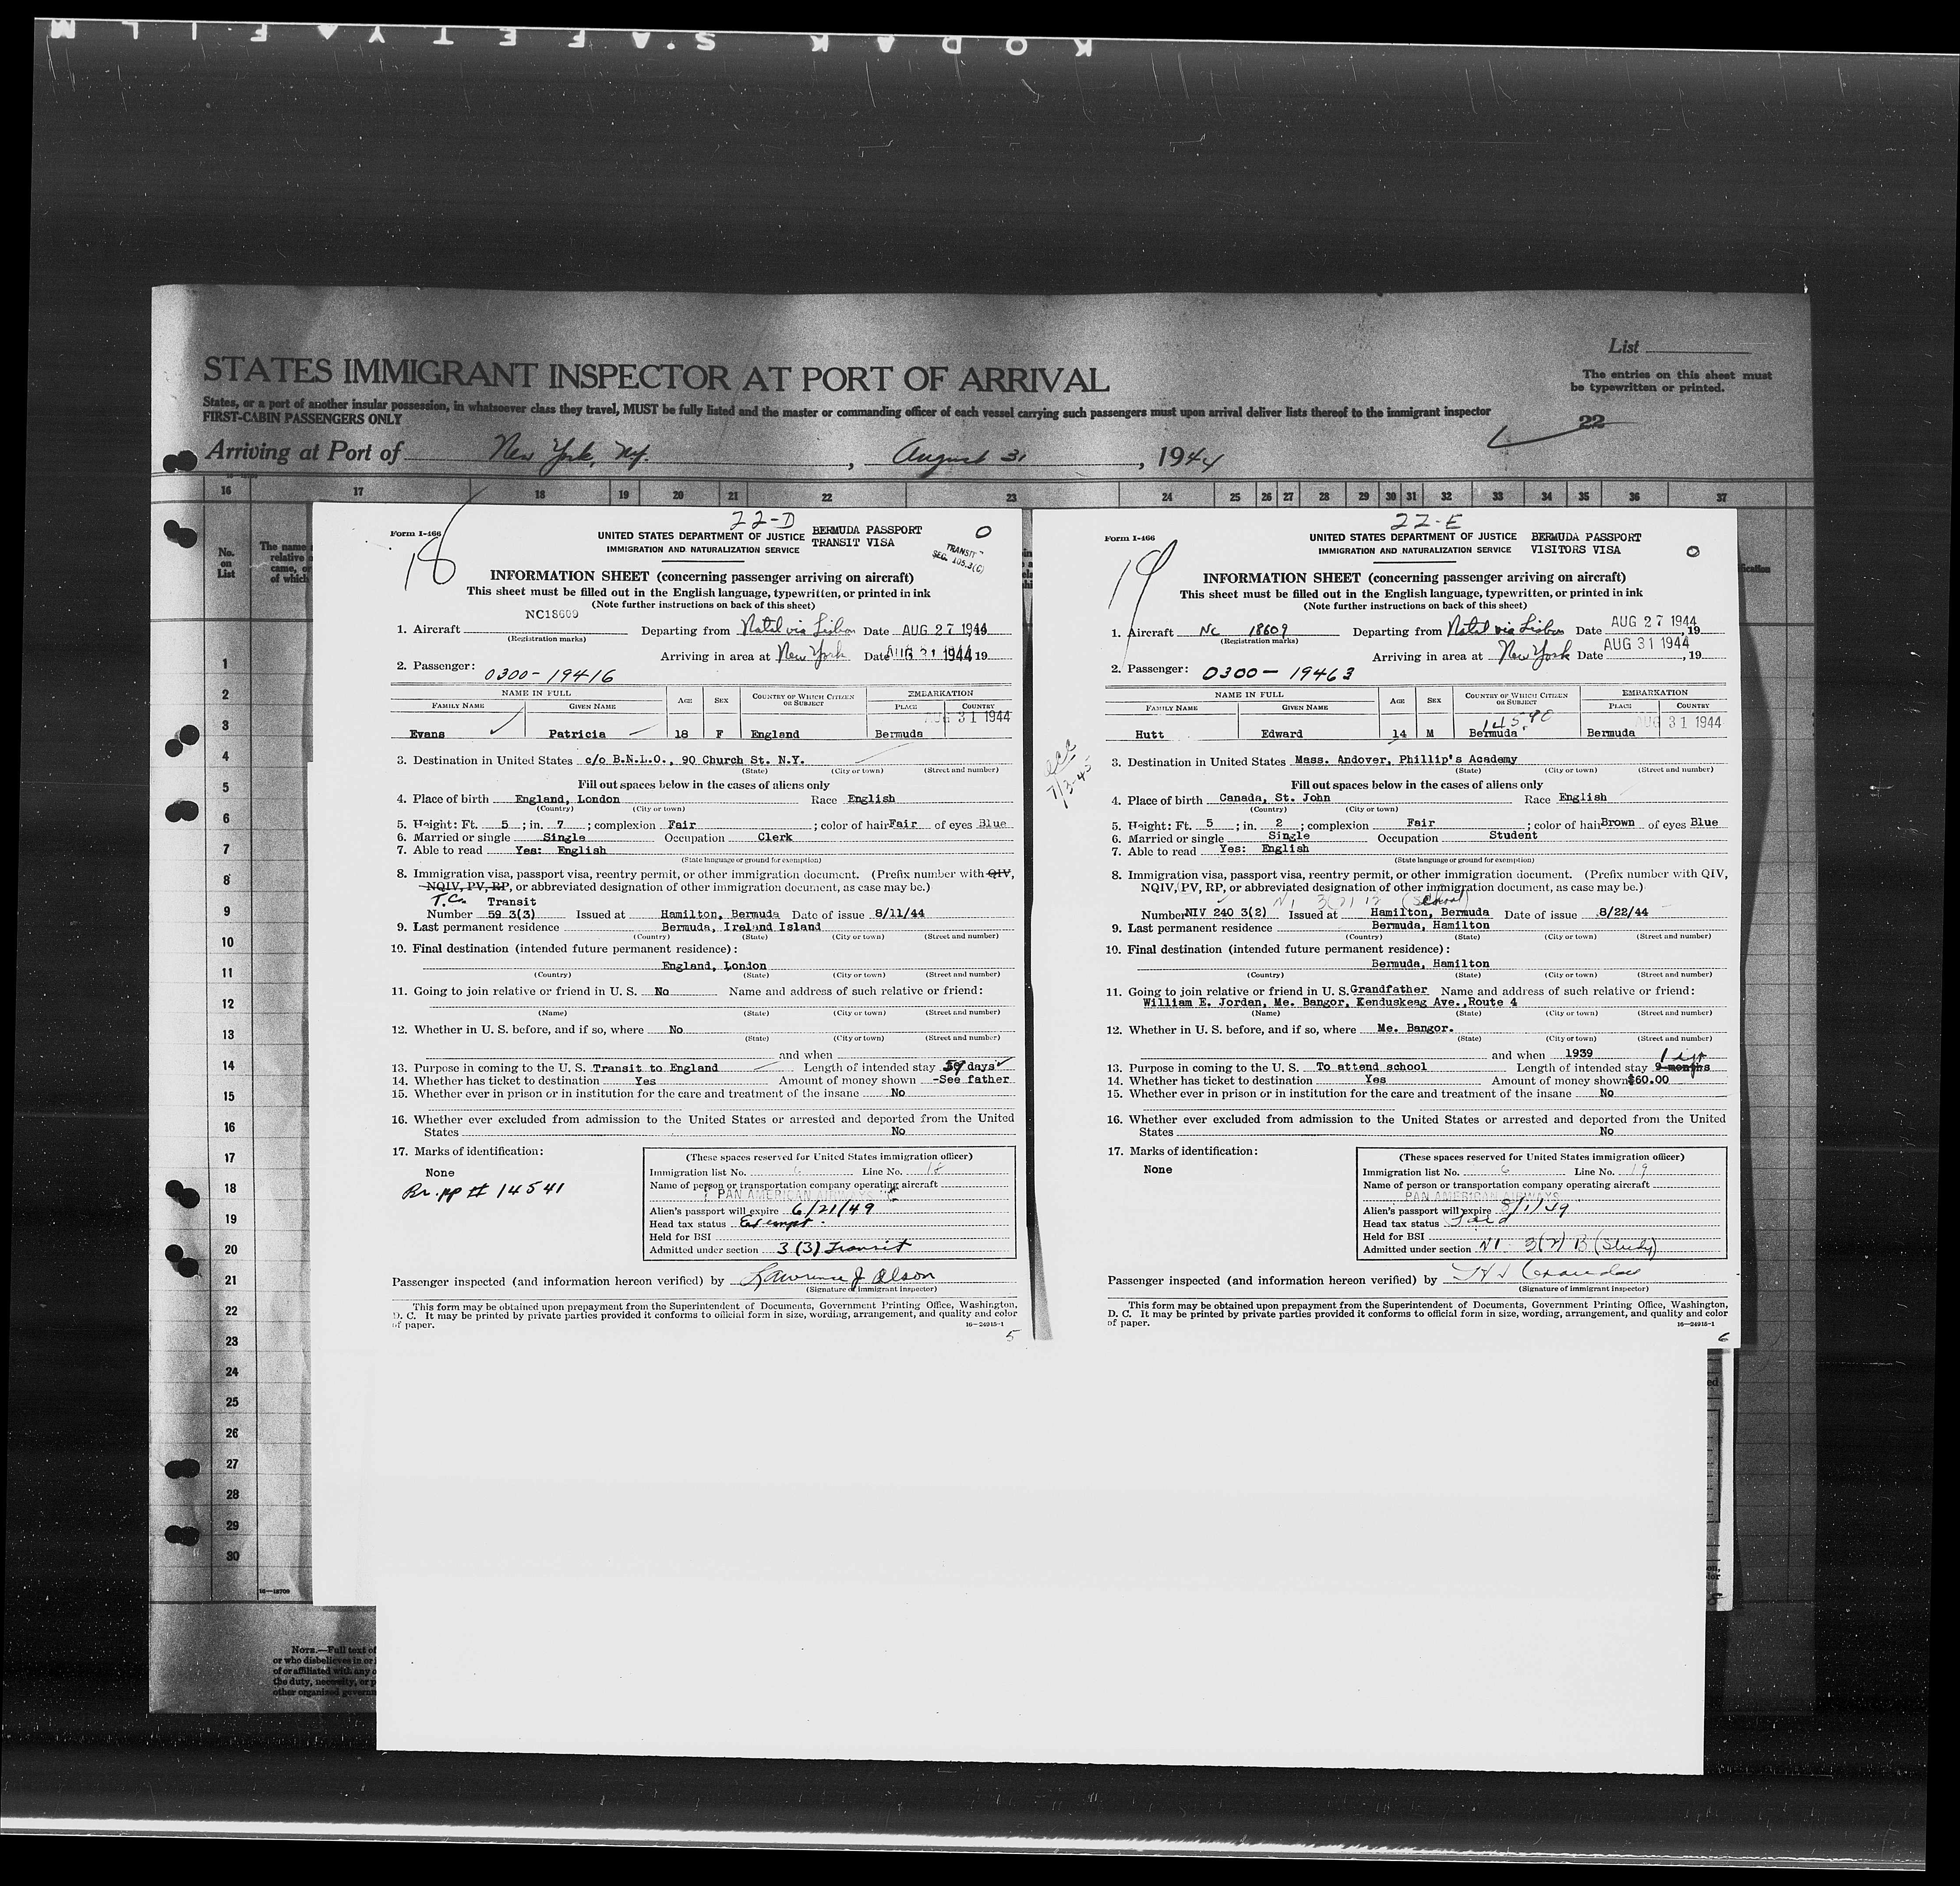 KODAK SAFETY FILM
STATES IMMIGRANT INSPECTOR AT PORT OF ARRIVAL
List
The entries on this sheet must
be typewritten or printed.
States, or a port of another insular possession, in whatsoever class they travel, MUST be fully listed and the master or commanding officer of each vessel carrying such passengers must upon arrival deliver lists thereof to the immigrant inspector
FIRST-CABIN PASSENGERS ONLY
22
Arriving at Port of New York, N.Y. , August 31 , 1944
16 17 18 19 20 21 22 23 24 25 26 27 28 29 30 31 32 33 34 35 36 37
No.
on
List
The name
relative o
came, o
of which
1
2
3
4
5
6
7
8
9
10
11
12
13
14
15
16
17
18
19
20
21
22
23
24
25
26
27
28
29
30
16—18709
NOTE.—Full text of
or who disbelieves in or
of or affiliated with any o
the duty, necessity, or p
other organized governm
22-D
Form I-466
18
UNITED STATES DEPARTMENT OF JUSTICE
IMMIGRATION AND NATURALIZATION SERVICE
BERMUDA PASSPORT
TRANSIT VISA
O
TRANSIT
SEC. 105.3(C)
INFORMATION SHEET (concerning passenger arriving on aircraft)
This sheet must be filled out in the English language, typewritten, or printed in ink
(Note further instructions on back of this sheet)
NC18609
1. Aircraft Departing from Natal via Lisbon Date AUG 27 1944
(Registration marks)
Arriving in area at New York Date AUG 31 1944 19
2. Passenger: 0300-19416
NAME IN FULL AGE SEX COUNTRY OF WHICH CITIZEN OR SUBJECT EMBARKATION
FAMILY NAME GIVEN NAME PLACE COUNTRY
AUG 31 1944
Evans Patricia 18 F England Bermuda
3. Destination in United States c/o B.N.L.O., 90 Church St. N.Y.
(State) (City or town) (Street and number)
Fill out spaces below in the cases of aliens only
4. Place of birth England, London Race English
(Country) (City or town)
5. Height: Ft. 5 ; in. 7 ; complexion Fair ; color of hair Fair of eyes Blue
6. Married or single Single Occupation Clerk
7. Able to read Yes: English
(State language or ground for exemption)
8. Immigration visa, passport visa, reentry permit, or other immigration document. (Prefix number with QIV,
NQIV, PV, RP, or abbreviated designation of other immigration document, as case may be.)
T.C. Transit
Number 59 3(3) Issued at Hamilton, Bermuda Date of issue 8/11/44
9. Last permanent residence Bermuda, Ireland Island
(Country) (State) (City or town) (Street and number)
10. Final destination (intended future permanent residence):
England, London
(Country) (State) (City or town) (Street and number)
11. Going to join relative or friend in U. S. No Name and address of such relative or friend:
(Name) (State) (City or town) (Street and number)
12. Whether in U. S. before, and if so, where No
(State) (City or town) (Street and number)
and when
13. Purpose in coming to the U. S. Transit to England Length of intended stay days
14. Whether has ticket to destination Yes Amount of money shown -See father
15. Whether ever in prison or in institution for the care and treatment of the insane No
16. Whether ever excluded from admission to the United States or arrested and deported from the United
States No
17. Marks of identification:
None
Br. pp # 14541
(These spaces reserved for United States immigration officer)
Immigration list No. 6 Line No. 18
Name of person or transportation company operating aircraft
PAN AMERICAN AIRWAYS
Alien's passport will expire 6/21/49
Head tax status Exempt.
Held for BSI
Admitted under section 3(3) Transit
Passenger inspected (and information hereon verified) by Lawrence J Olson
(Signature of immigrant inspector)
This form may be obtained upon prepayment from the Superintendent of Documents, Government Printing Office, Washington,
D. C. It may be printed by private parties provided it conforms to official form in size, wording, arrangement, and quality and color
of paper.
16—24915-1
5
22-E
Form I-466
19
UNITED STATES DEPARTMENT OF JUSTICE
IMMIGRATION AND NATURALIZATION SERVICE
BERMUDA PASSPORT
VISITORS VISA
O
INFORMATION SHEET (concerning passenger arriving on aircraft)
This sheet must be filled out in the English language, typewritten, or printed in ink
(Note further instructions on back of this sheet)
1. Aircraft NC 18609 Departing from Natal via Lisbon Date AUG 27 1944, 19
(Registration marks)
Arriving in area at New York Date AUG 31 1944, 19
2. Passenger: 0300-19463
NAME IN FULL AGE SEX COUNTRY OF WHICH CITIZEN OR SUBJECT EMBARKATION
FAMILY NAME GIVEN NAME PLACE COUNTRY
14590 AUG 31 1944
Hutt Edward 14 M Bermuda Bermuda
7/3-45
3. Destination in United States Mass. Andover, Phillip's Academy
(State) (City or town) (Street and number)
Fill out spaces below in the cases of aliens only
4. Place of birth Canada, St. John Race English
(Country) (City or town)
5. Height: Ft. 5 ; in. 2 ; complexion Fair ; color of hair Brown of eyes Blue
6. Married or single Single Occupation Student
7. Able to read Yes: English
(State language or ground for exemption)
8. Immigration visa, passport visa, reentry permit, or other immigration document. (Prefix number with QIV,
NQIV, PV, RP, or abbreviated designation of other immigration document, as case may be.)
(School)
Number NIV 240 3(2) Issued at Hamilton, Bermuda Date of issue 8/22/44
9. Last permanent residence Bermuda, Hamilton
(Country) (State) (City or town) (Street and number)
10. Final destination (intended future permanent residence):
Bermuda, Hamilton
(Country) (State) (City or town) (Street and number)
11. Going to join relative or friend in U. S. Grandfather Name and address of such relative or friend:
William E. Jordan, Me. Bangor, Kenduskeag Ave.,Route 4
(Name) (State) (City or town) (Street and number)
12. Whether in U. S. before, and if so, where Me. Bangor.
(State) (City or town) (Street and number)
and when 1939
13. Purpose in coming to the U. S. To attend school Length of intended stay 9 months
14. Whether has ticket to destination Yes Amount of money shown $60.00
15. Whether ever in prison or in institution for the care and treatment of the insane No
16. Whether ever excluded from admission to the United States or arrested and deported from the United
States No
17. Marks of identification:
None
(These spaces reserved for United States immigration officer)
Immigration list No. 6 Line No. 19
Name of person or transportation company operating aircraft
PAN AMERICAN AIRWAYS
Alien's passport will expire 8/1/49
Head tax status Paid
Held for BSI
Admitted under section NI 3(2) B (Study)
Passenger inspected (and information hereon verified) by
(Signature of immigrant inspector)
This form may be obtained upon prepayment from the Superintendent of Documents, Government Printing Office, Washington,
D. C. It may be printed by private parties provided it conforms to official form in size, wording, arrangement, and quality and color
of paper.
16—24915-1
6